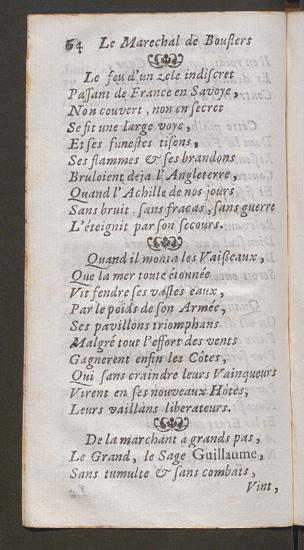 64 Le Marechal de Bouflers
Le feu d'un zele indiscret
Passant de France en Savoye,
Non couvert, non en secret
Se fit une large voye,
Et ses funestes tisons,
Ses flammes & ses brandons
Bruloient deja l'Angleterre,
Quand l'Achille de nos jours
Sans bruit, sans fracas, sans guerre
L'éteignit par son secours.
Quand il monta les Vaisseaux,
Que la mer toute étonnée
Vit fendre ses vastes eaux,
Par le poids de son Armée,
Ses pavillons triomphans
Malgré tout l'effort des vents
Gagnerent enfin les Côtes,
Qui sans craindre leurs Vainqueurs
Virent en ses nouveaux Hôtes,
Leurs vaillans liberateurs.
De la marchant à grands pas,
Le Grand, le Sage Guillaume,
Sans tumulte & sans combats,
Vint,